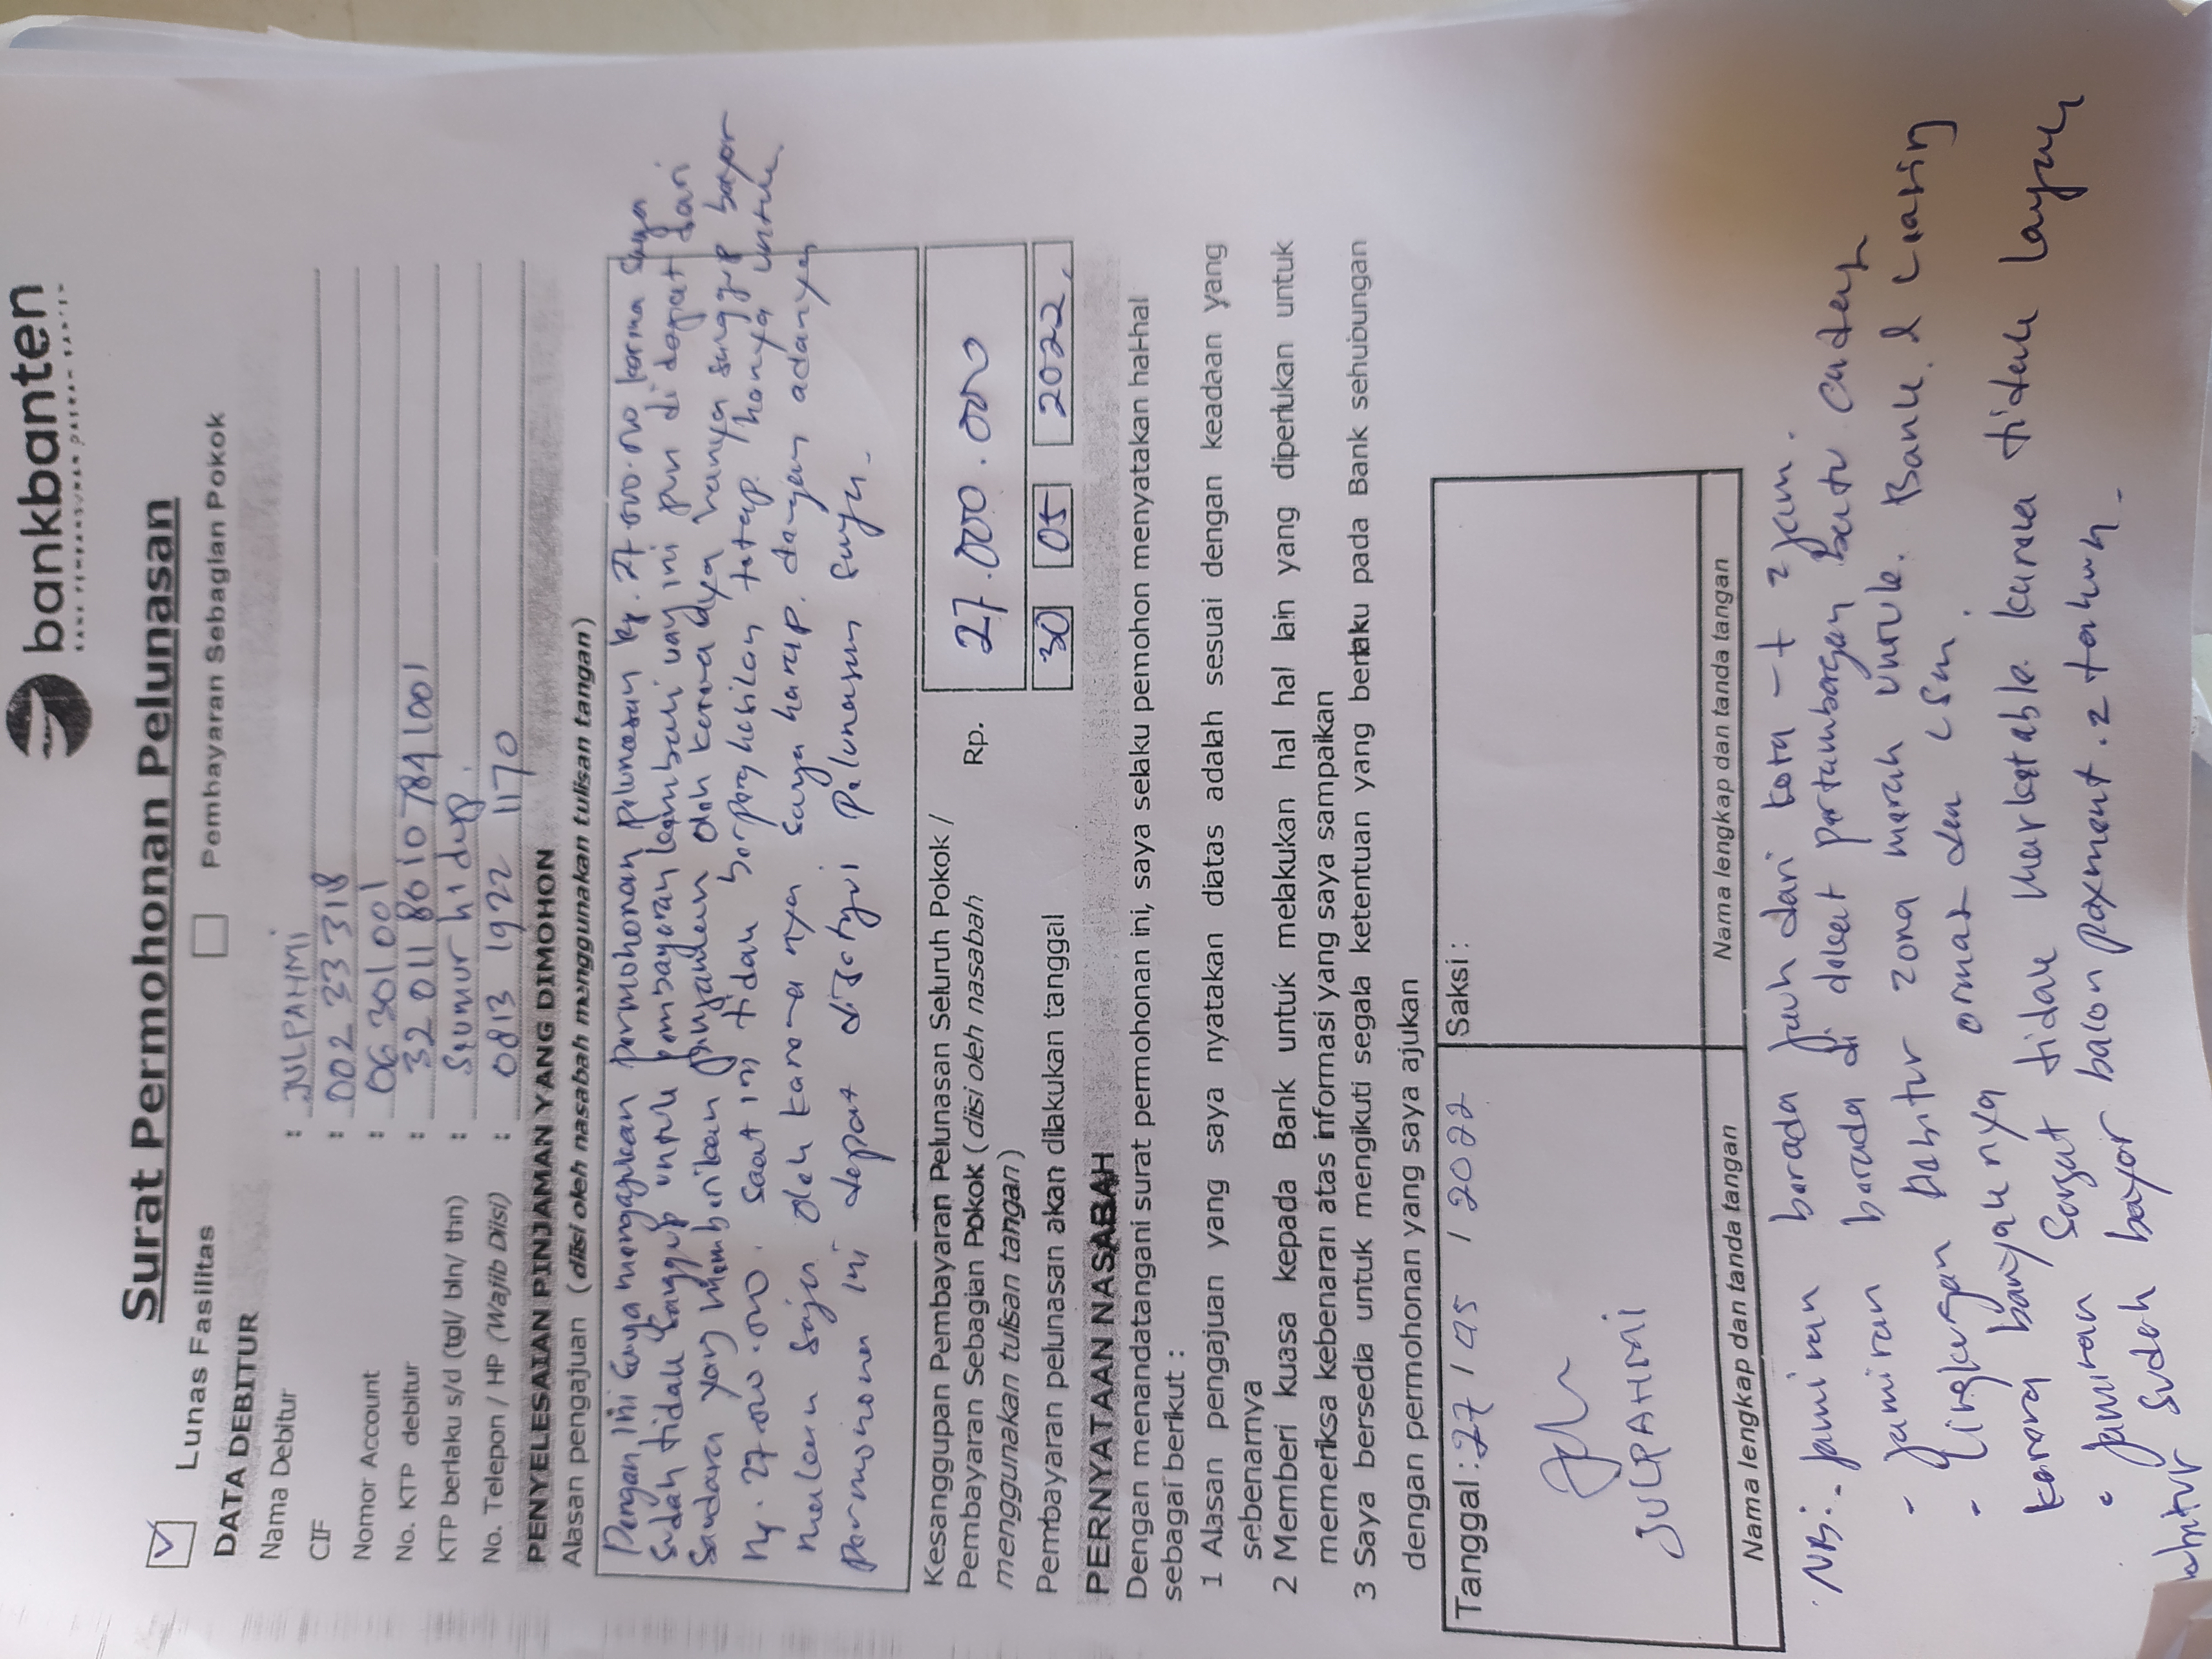 bankbanten
Surat Permohonan Pelunasan
Lunas Fasilitas Pembayaran Sebagian Pokok
DATA DEBITUR
Nama Debitur : JULPAHMI
CIF : 002 33 318
Nomor Account : 06 301 001
No. KTP debitur : 32 011 8010 784 1001
KTP berlaku s/d (tgl/ bln/ thn) : Seumur hidup.
No. Telepon / HP (Wajib Diisi) : 0813 1922 1170
PENYELESAIAN PINJAMAN YANG DIMOHON
Alasan pengajuan (diisi oleh nasabah menggunakan tulisan tangan)
Dengan ini saya mengajukan permohonan pelunasan Rp. 27.000.000 karna saya
sudah tidak sanggup untuk pembayaran kembali uang ini pun di dapat dari
saudara yang memberikan pinjaman oleh karena nya hanya sanggup bayar
Rp. 27.000.000. saat ini tidak berpenghasilan tetap. hanya untuk
makan saja oleh karena nya saya harap. dengan adanya
permohonan ini dapat disetujui pelunasan saya.
Kesanggupan Pembayaran Pelunasan Seluruh Pokok /
Pembayaran Sebagian Pokok (diisi oleh nasabah Rp. 27.000.000
menggunakan tulisan tangan)
Pembayaran pelunasan akan dilakukan tanggal 30 05 2022
PERNYATAAN NASABAH
Dengan menandatangani surat permohonan ini, saya selaku pemohon menyatakan hal-hal
sebagai berikut :
1 Alasan pengajuan yang saya nyatakan diatas adalah sesuai dengan keadaan yang
sebenarnya
2 Memberi kuasa kepada Bank untuk melakukan hal hal lain yang diperlukan untuk
memeriksa kebenaran atas informasi yang saya sampaikan
3 Saya bersedia untuk mengikuti segala ketentuan yang berlaku pada Bank sehubungan
dengan permohonan yang saya ajukan
Tanggal : 27 / 05 / 2022 Saksi :
JULPAHMI
Nama lengkap dan tanda tangan Nama lengkap dan tanda tangan
NB: - Jaminan berada jauh dari kota -+ 2 jam.
- Jaminan berada di dekat pertambangan batu
- lingkungan debitur zona merah untuk. Bank &
karena banyak nya ormas dan LSM.
• Jaminan sangat tidak marketable karena tidak layak
debitur sudah bayar balon payment. 2 tahun -